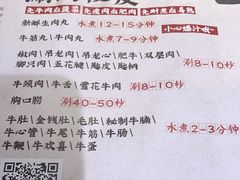 先牛肉后蔬菜 先瘦肉后肥肉 先耐煮后易熟
新鲜生肉丸 水煮12-15分钟
牛筋丸/牛肉丸 水煮7-9分钟 小心爆汁哦~
嫩肉/吊龙/吊龙心/肥牛/双层肉/
脚只肉/五花腱/胸皮/胸柄 涮8-10秒
牛颈肉/牛舌/雪花牛肉 涮8-10秒
胸口朥 涮40-50秒
牛肚/金钱肚/毛肚/秘制牛腩/
牛心管/牛尾/牛筋/牛肠/ 水煮2-3分钟
牛鞭/牛欢喜/牛蛋